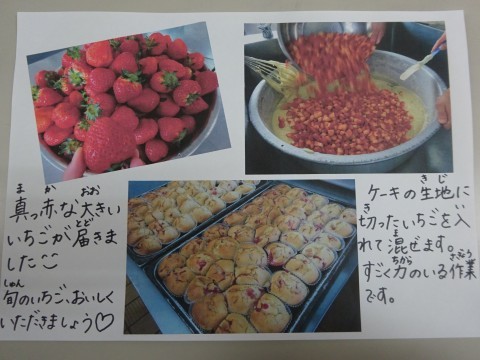 真っ赤な大きい
いちごが届きま
した
旬のいちご、おいしく
いただきましょう♡
ケーキの生地に
切ったいちごを入
れて混ぜます。
すごく力のいる作業
です。